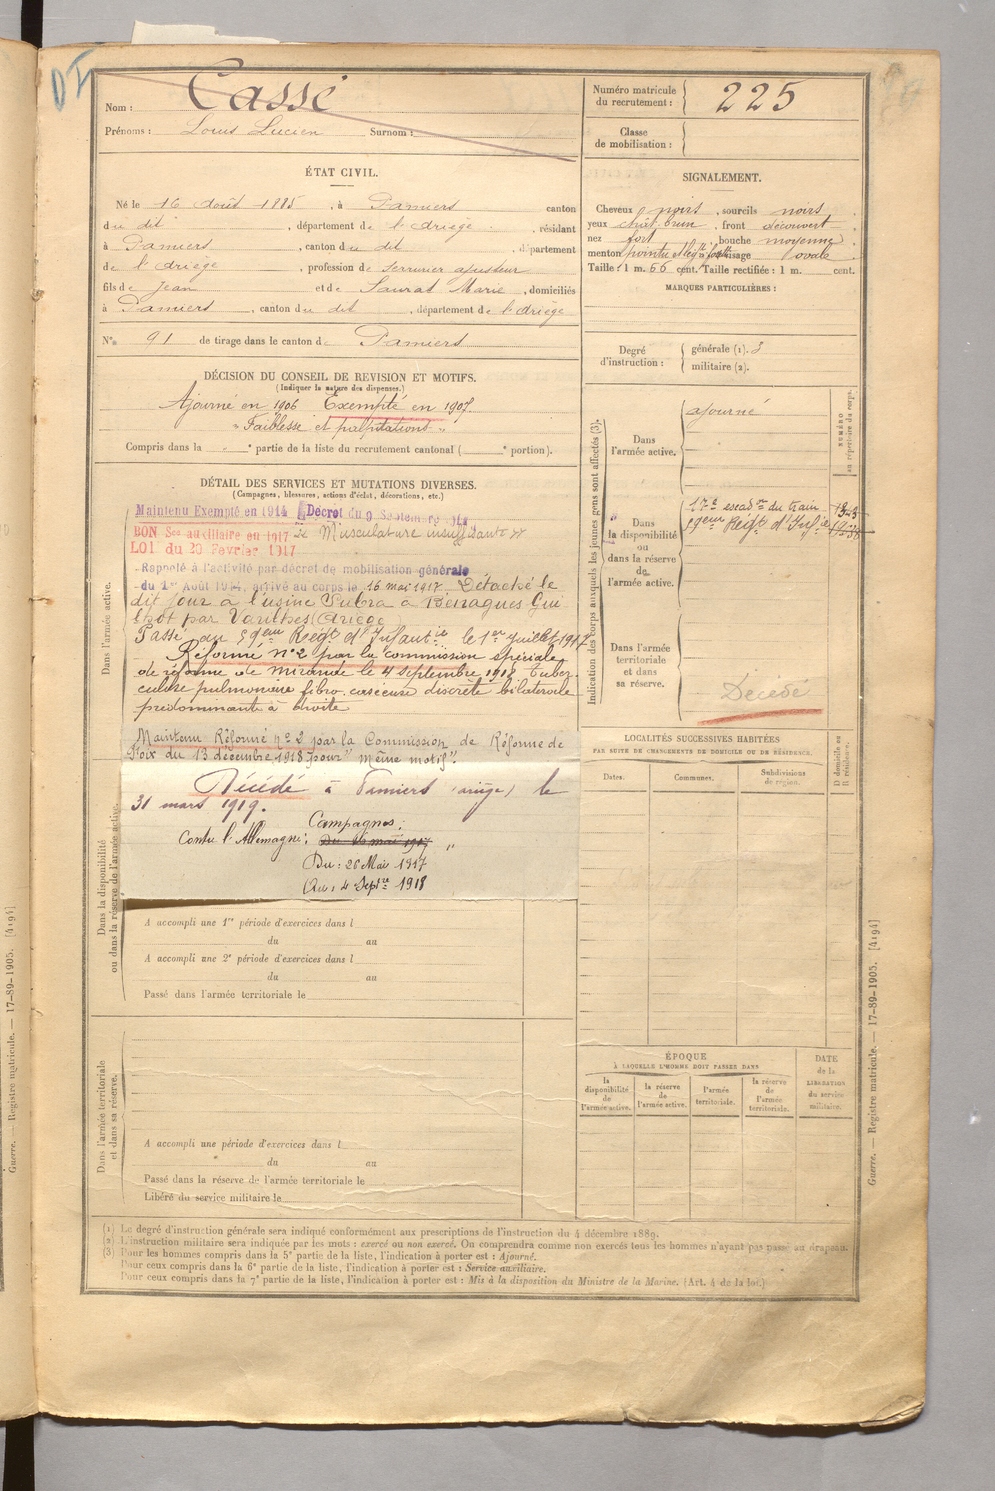 DI
Nom : Cassé
Prénoms : Louis Lucien Surnom :
Numéro matricule
du recrutement : 225
Classe
de mobilisation :
ÉTAT CIVIL.
Né le 16 Août 1885, à Pamiers canton
du dit, département de l'Ariège, résidant
à Pamiers, canton du dit, département
de l'Ariège, profession de Serrurier ajusteur
fils de Jean et de Saurat Marie, domiciliés
à Pamiers, canton du dit, département de l'Ariège
N° 91 de tirage dans le canton de Pamiers
SIGNALEMENT.
Cheveux noirs, sourcils noirs
yeux chât. brun, front découvert
nez fort, bouche moyenne
menton pointu visage ovale
Taille : 1 m. 66 cent. Taille rectifiée : 1 m. cent.
MARQUES PARTICULIÈRES :
Degré
d'instruction :
générale (1). 3
militaire (2).
DÉCISION DU CONSEIL DE REVISION ET MOTIFS.
(Indiquer la nature des dispenses.)
Ajourné en 1906 Exempté en 1907
"Faiblesse et palpitations"
Compris dans la e partie de la liste du recrutement cantonal ( e portion).
DÉTAIL DES SERVICES ET MUTATIONS DIVERSES.
(Campagnes, blessures, actions d'éclat, décorations, etc.)
Dans l'armée active.
Maintenu Exempté en 1914 Décret du 9 Septembre 1914
BON Sce auxiliaire en 1917 Musculature insuffisante
LOI du 20 Février 1917
Rappelé à l'activité par décret de mobilisation générale
du 1er Août 1914, arrivé au corps le 16 mai 1917. Détaché le
dit jour à l'usine
par Varilhes (Ariège
Passé au 59ème Regt d'Infantie le 1er Juillet 1917
Réformé n°2 par la commission spéciale
de réforme de Mirande le 4 septembre 1918 tuber
culose pulmonaire fibro caséeuse discrète bilatérale
prédominante à droite
Maintenu Réformé n°2 par la Commission de Réforme de
Foix du 13 décembre 1918 pour "Même motif".
Décédé à Pamiers (ariège) le
31 mars 1919.
Campagnes :
Contre l'Allemagne : Du 16 mai 1917 "
Du : 26 Mai 1917
Au : 4 Septre 1918
Dans la disponibilité
ou dans la réserve de l'armée active.
A accompli une 1re période d'exercices dans l
du au
A accompli une 2e période d'exercices dans l
du au
Passé dans l'armée territoriale le
Dans l'armée territoriale
et dans sa réserve.
A accompli une période d'exercices dans l
du au
Passé dans la réserve de l'armée territoriale le
Libéré du service militaire le
Indication des corps auxquels les jeunes gens sont affectés (3).
NUMÉRO
au répertoire du corps.
Dans
l'armée active.
ajourné
Dans
la disponibilité
ou
dans la réserve
de
l'armée active.
17e escadon du train
59ème Regt d'Infie
Dans l'armée
territoriale
et dans
sa réserve.
Décédé
LOCALITÉS SUCCESSIVES HABITÉES
PAR SUITE DE CHANGEMENTS DE DOMICILE OU DE RÉSIDENCE.
Dates.
Communes.
Subdivisions
de région.
D domicile ou
R résidence.
ÉPOQUE
À LAQUELLE L'HOMME DOIT PASSER DANS
la
disponibilité
de
l'armée active.
la réserve
de
l'armée active.
l'armée
territoriale.
la réserve
de
l'armée
territoriale.
DATE
de la
LIBÉRATION
du service
militaire.
(1) Le degré d'instruction générale sera indiqué conformément aux prescriptions de l'instruction du 4 décembre 1889.
(2) L'instruction militaire sera indiquée par les mots : exercé ou non exercé. On comprendra comme non exercés tous les hommes n'ayant pas passé au drapeau.
(3) Pour les hommes compris dans la 5e partie de la liste, l'indication à porter est : Ajourné.
Pour ceux compris dans la 6e partie de la liste, l'indication à porter est : Service auxiliaire.
Pour ceux compris dans la 7e partie de la liste, l'indication à porter est : Mis à la disposition du Ministre de la Marine. (Art. 4 de la loi.)
Guerre. — Registre matricule. — 17-89-1905. [4194]
Guerre. — Registre matricule. — 17-89-1905. [4194]